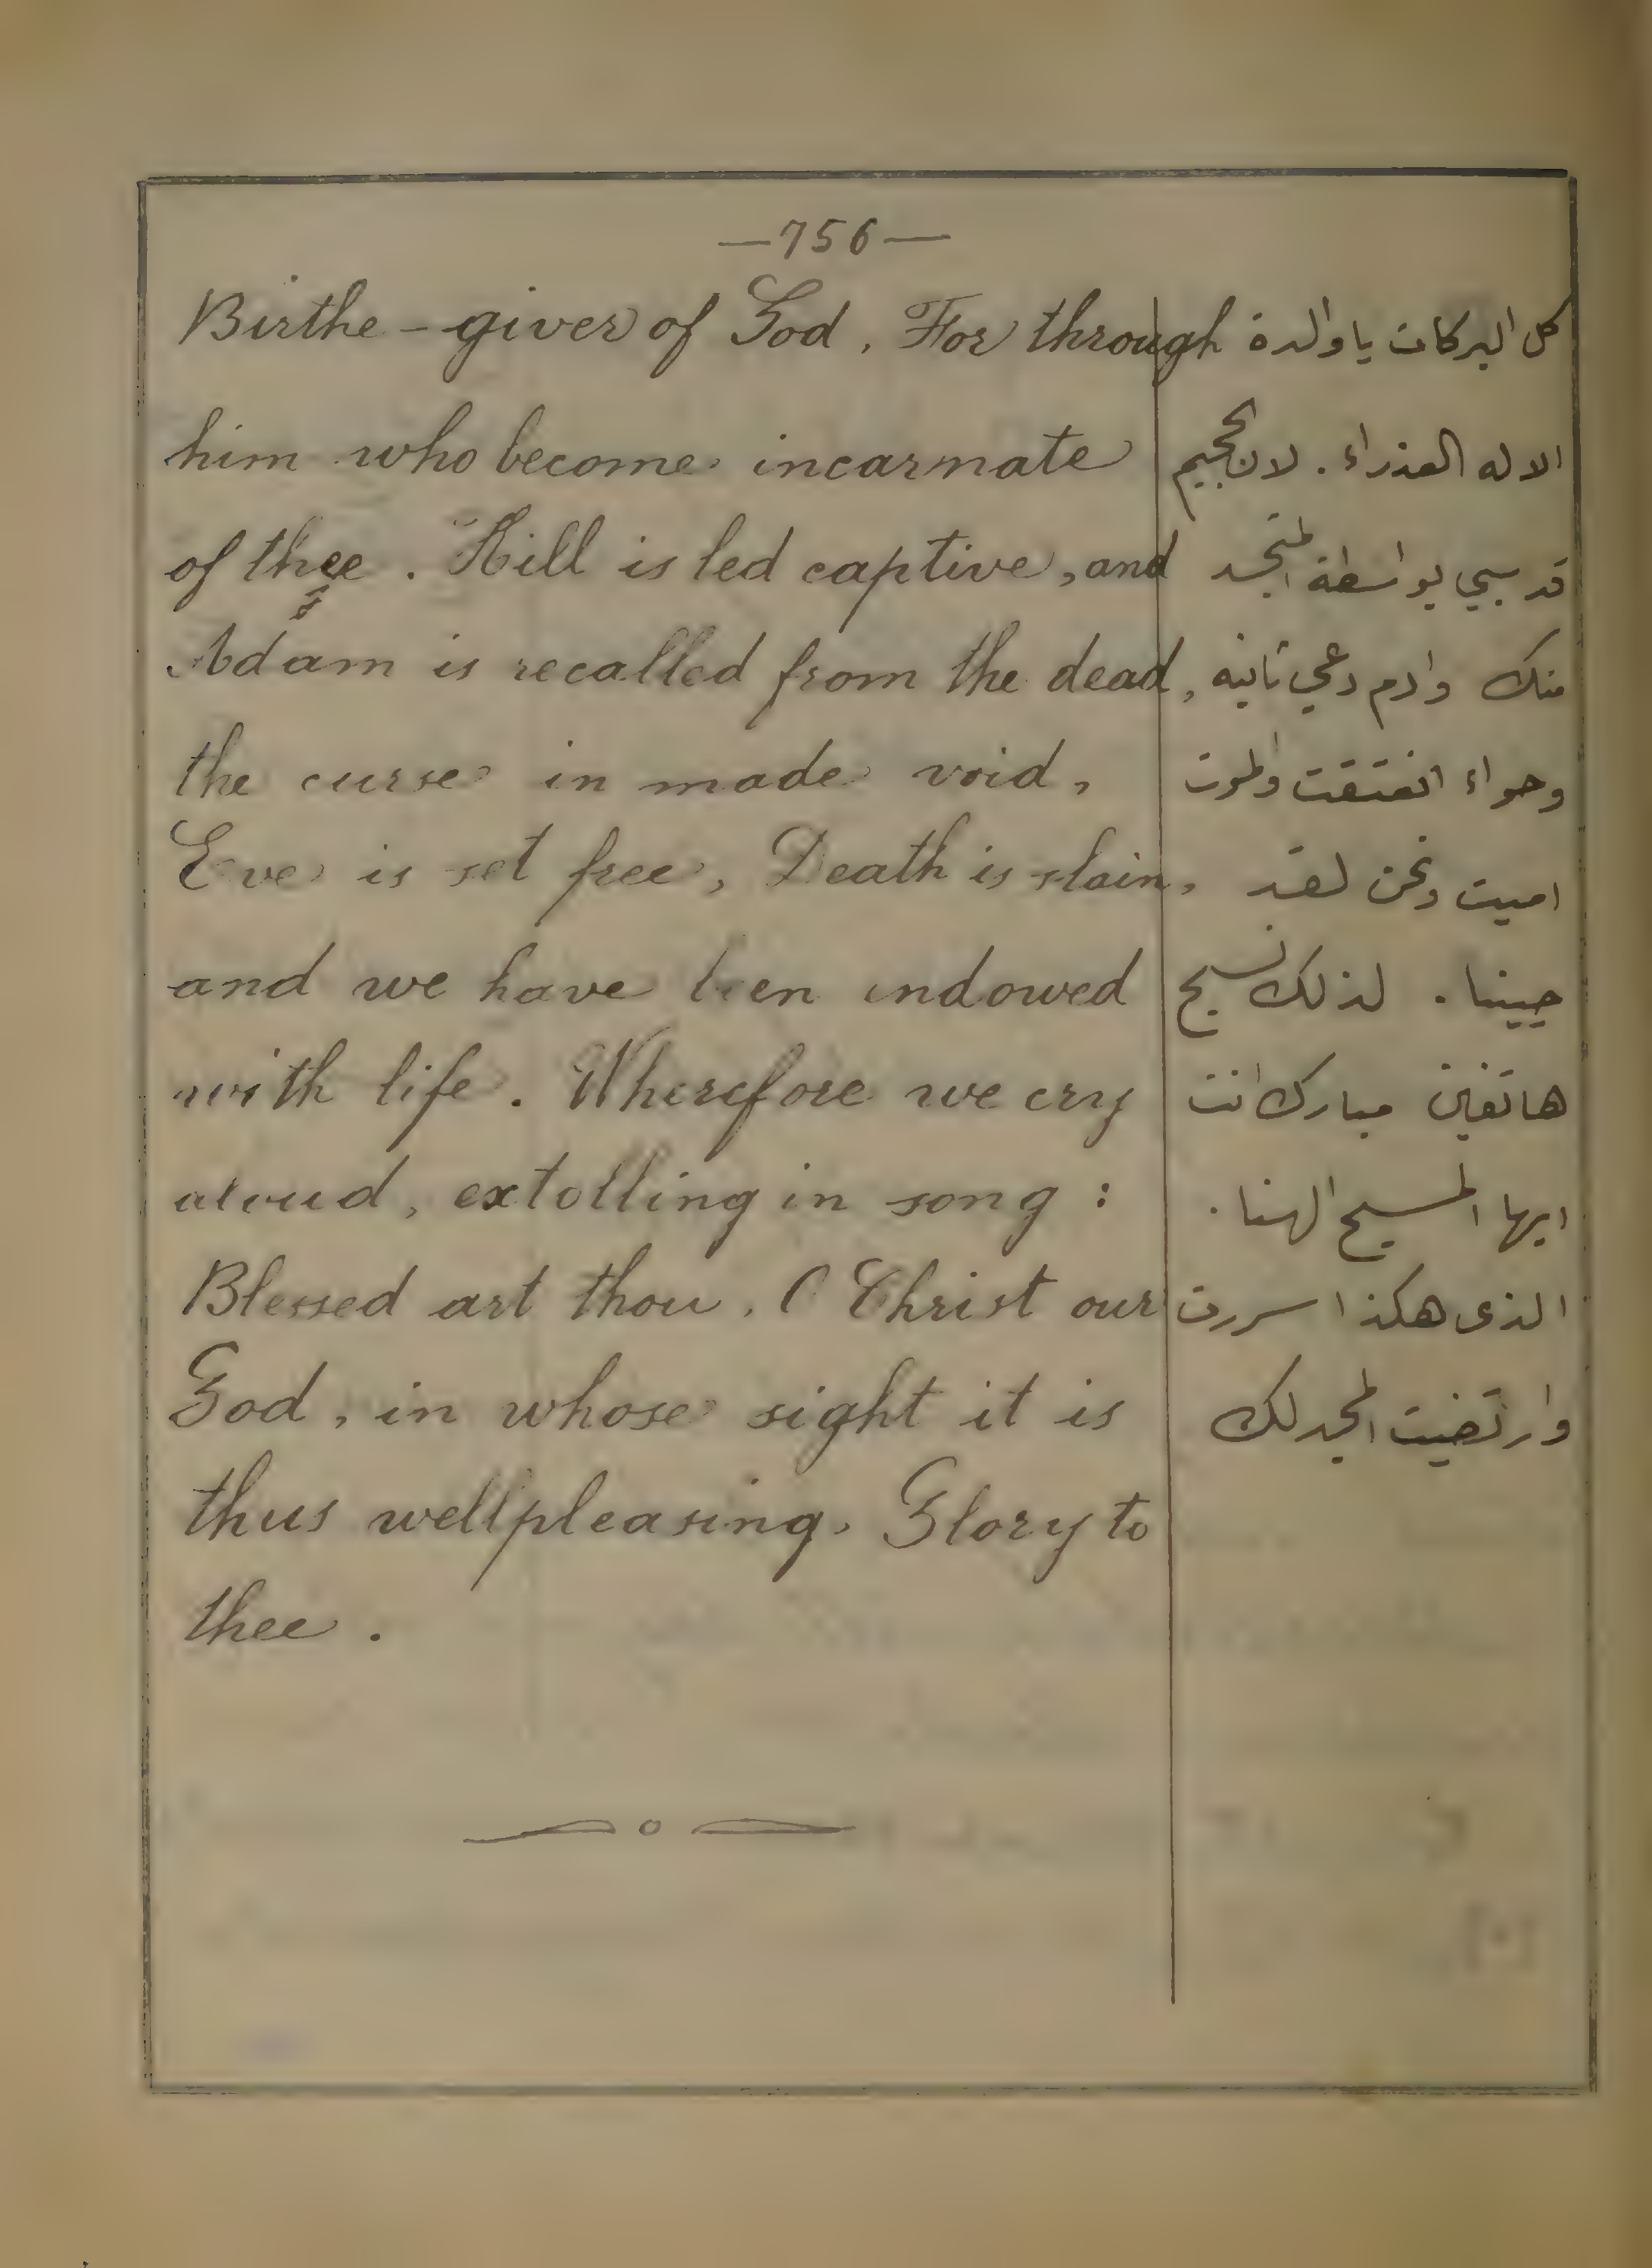 —756—
Birthe-giver of God. For through
him who become incarnate
of thee. Hill is led captive, and
Adam is recalled from the dead,
the curse in made void,
Eve is set free, Death is slain,
and we have been indowed
with life. Wherefore we cry
aloud, extolling in song:
Blessed art thou. O Christ our
God, in whose sight it is
thus wellpleasing. Glory to
thee.
كل البركات يا والدة
الاله العذراء. لان الجحيم
قد سبي بواسطة المتجسد
منك وادم دعي ثانية
وحواء انعتقت والموت
اميت ونحن لقد
حيينا. لذلك نسبح
هاتفين مبارك انت
ايها المسيح الهنا.
الذى هكذا سررت
وارتضيت المجد لك